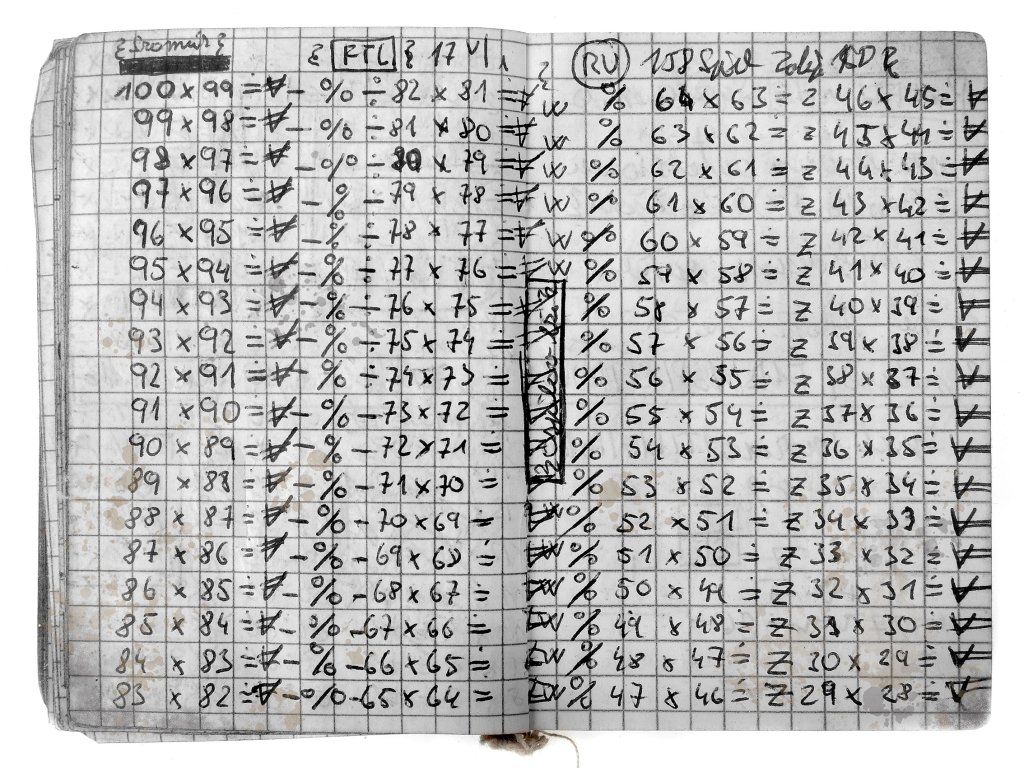 { FTL } 17 VI
100 x 99 = ∀ - % ÷ 82 x 81 =
99 x 98 = ∀ - % ÷ 81 x 80 =
98 x 97 = ∀ - % - 80 x 79 =
97 x 96 = ∀ - % - 79 x 78 =
96 x 95 = ∀ - % ÷ 78 x 77 =
95 x 94 = ∀ - % ÷ 77 x 76 =
94 x 93 = ∀ - % ÷ 76 x 75 =
93 x 92 = ∀ - % ÷ 75 x 74 =
92 x 91 = ∀ - % ÷ 74 x 73 =
91 x 90 = ∀ - % - 73 x 72 =
90 x 89 = ∀ - % - 72 x 71 =
89 x 88 = ∀ - % - 71 x 70 =
88 x 87 = ∀ - % - 70 x 69 =
87 x 86 = ∀ - % - 69 x 68 =
86 x 85 = ∀ - % - 68 x 67 =
85 x 84 = ∀ - % - 67 x 66 =
84 x 83 = ∀ - % - 66 x 65 =
83 x 82 = ∀ - % - 65 x 64 =
RU 158
W % 64 x 63 = z 46 x 45 = ∀
W % 63 x 62 = z 45 x 44 = ∀
W % 62 x 61 = z 44 x 43 = ∀
W % 61 x 60 = z 43 x 42 = ∀
W % 60 x 59 = z 42 x 41 = ∀
W % 59 x 58 = z 41 x 40 = ∀
% 58 x 57 = z 40 x 39 = ∀
% 57 x 56 = z 39 x 38 = ∀
% 56 x 55 = z 38 x 37 = ∀
% 55 x 54 = z 37 x 36 = ∀
% 54 x 53 = z 36 x 35 = ∀
% 53 x 52 = z 35 x 34 = ∀
% 52 x 51 = z 34 x 33 = ∀
W % 51 x 50 = z 33 x 32 = ∀
W % 50 x 49 = z 32 x 31 = ∀
W % 49 x 48 = z 31 x 30 = ∀
W % 48 x 47 = z 30 x 29 = ∀
W % 47 x 46 = z 29 x 28 = ∀